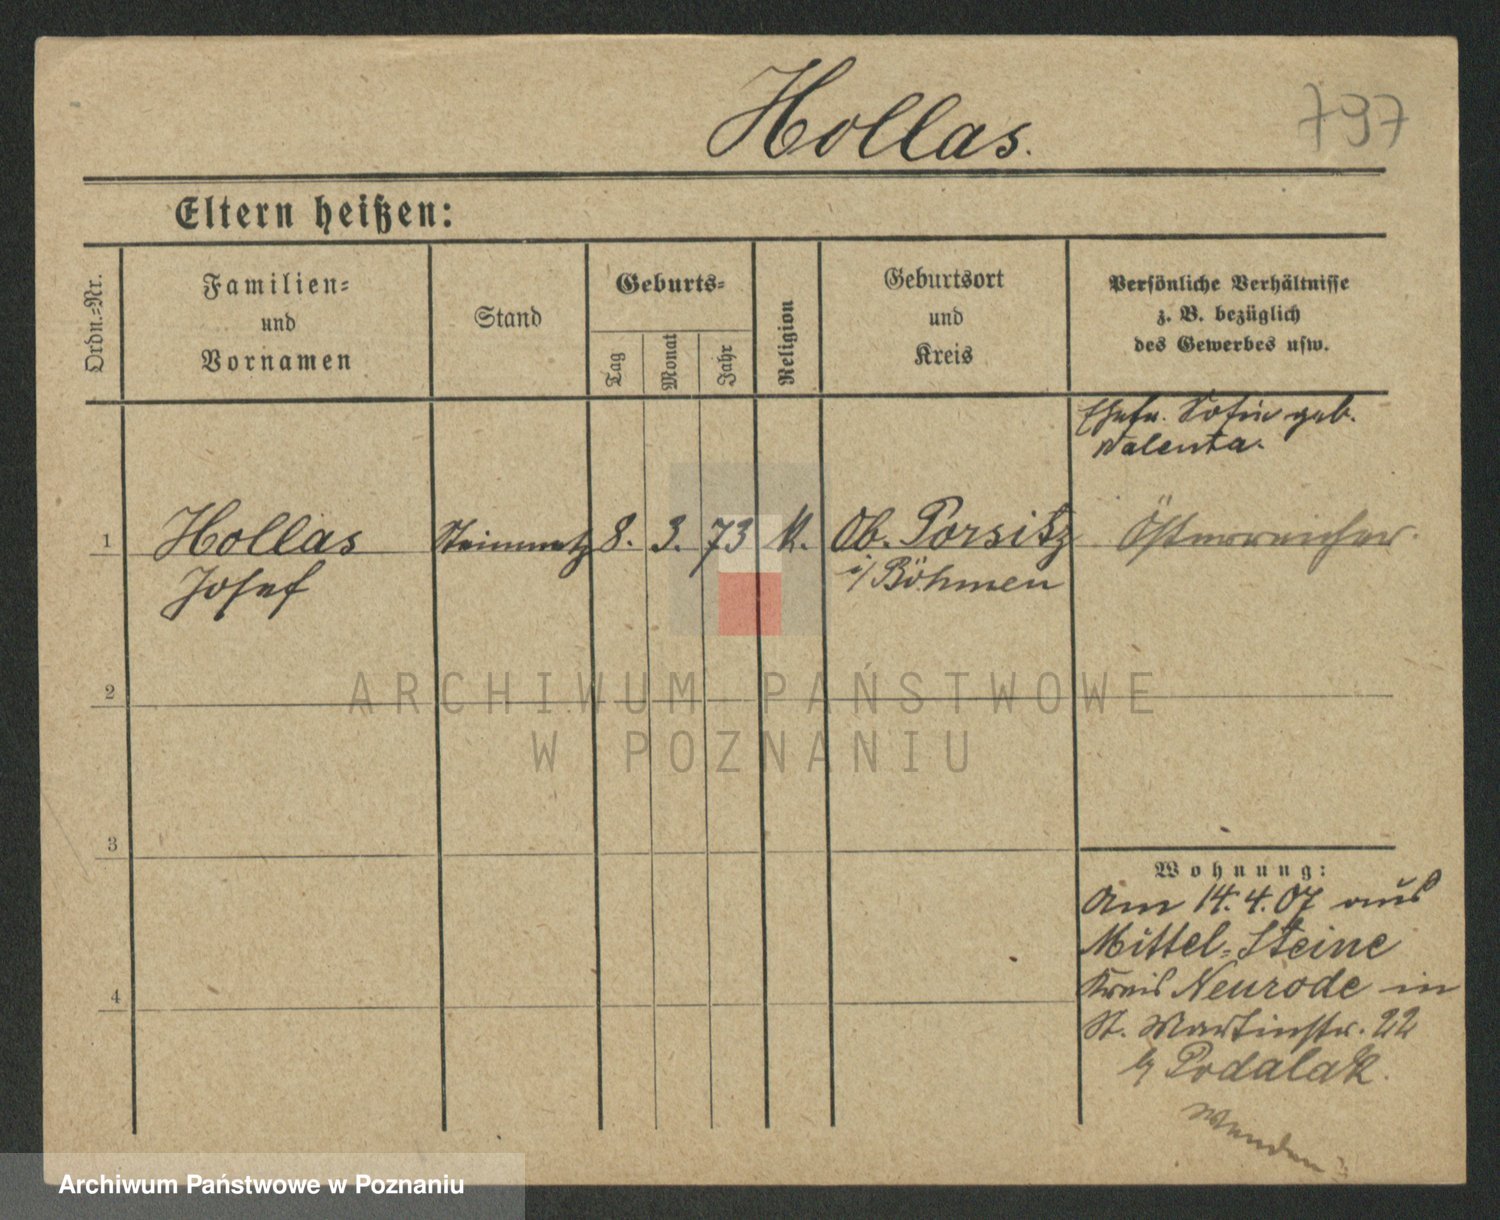 Hollas.
797
Eltern heißen:
Ordn.=Nr.
Familien=
und
Vornamen
Stand
Geburts=
Tag
Monat
Jahr
Religion
Geburtsort
und
Kreis
Persönliche Verhältnisse
z. B. bezüglich
des Gewerbes usw.
Ehefr. Sofie geb.
Valenta.
1
Hollas
Josef
Steinmetz
8.
3.
73
K.
Ob. Porsitz
i/Böhmen
Österreicher.
2
3
4
Wohnung:
Am 14.4.07 aus
Mittel=Steine
Kreis Neurode in
St. Martinstr. 22
b/ Podalak.
Wenden
ARCHIWUM PAŃSTWOWE
W POZNANIU
Archiwum Państwowe w Poznaniu